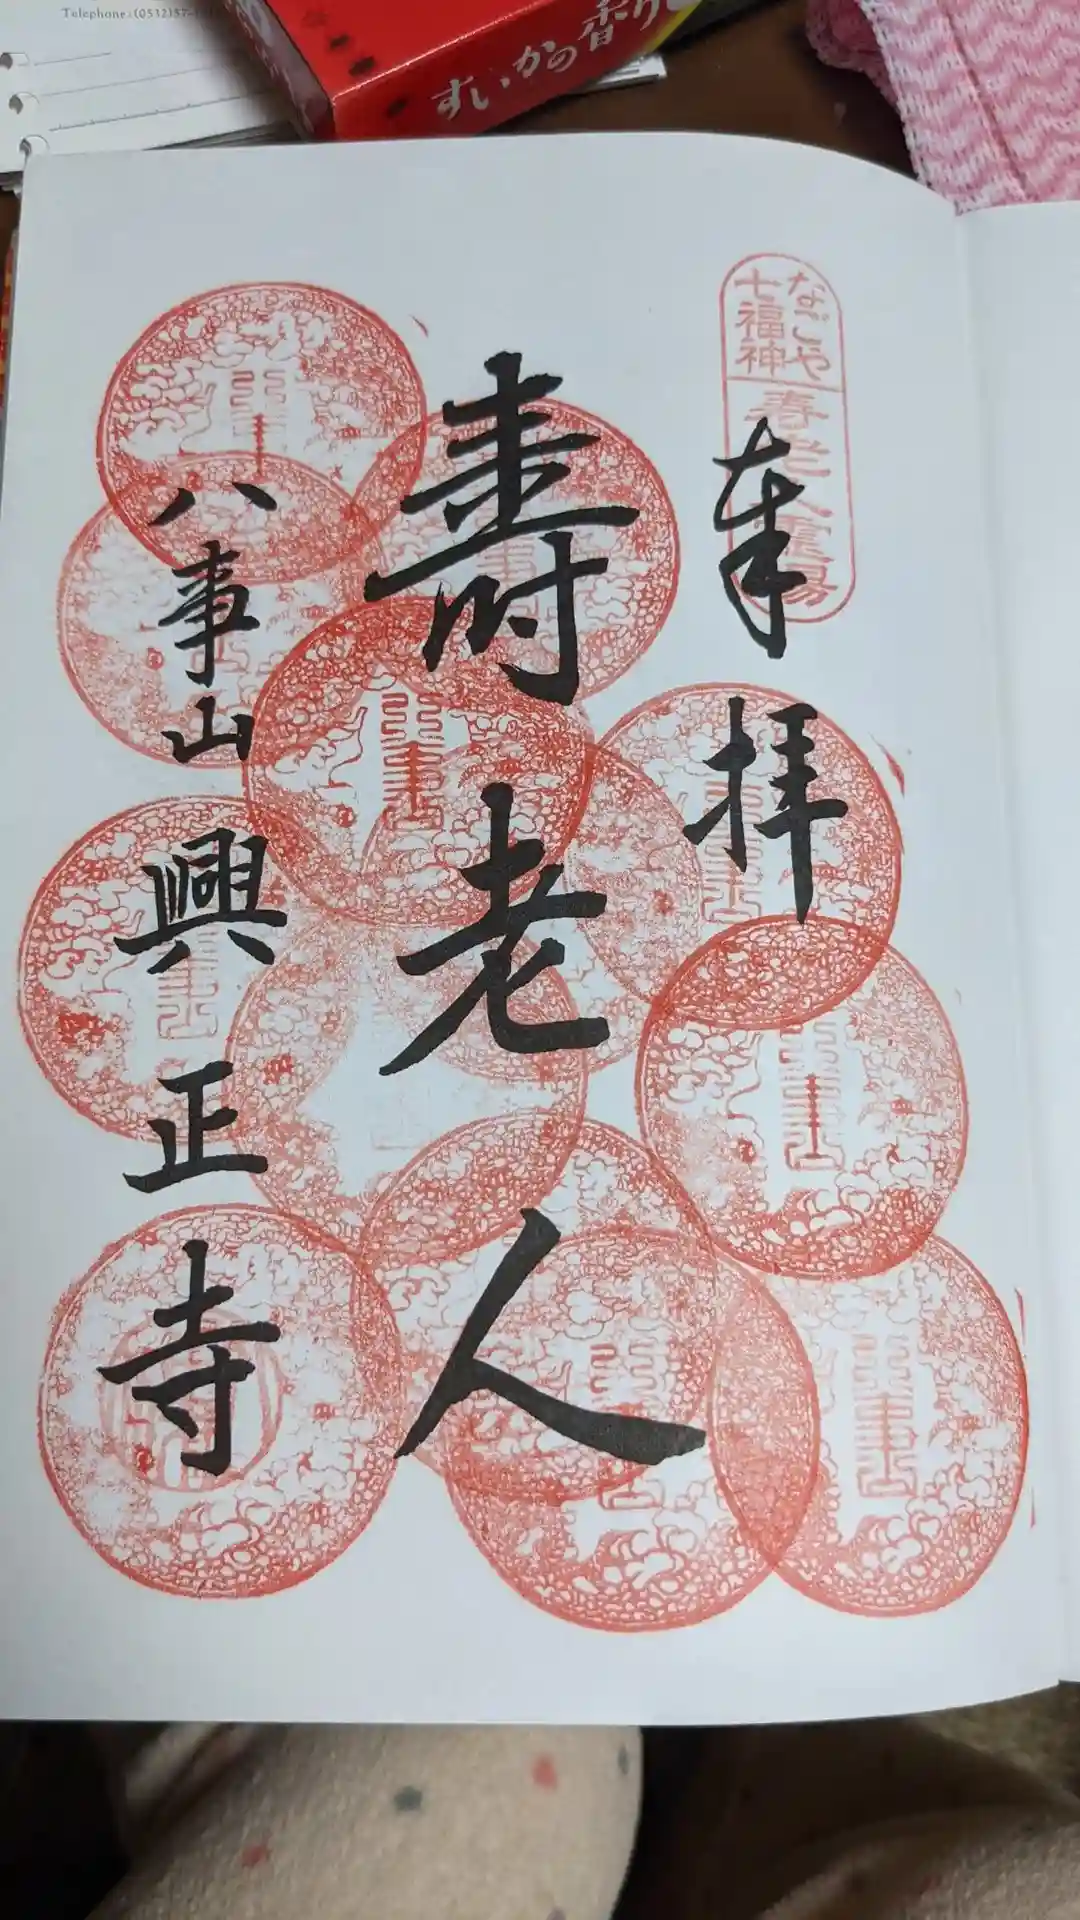 Telephone:(0532)57-
すいかの香り
なごや
七福神
寿老人霊場
奉拝
寿老人
八事山興正寺